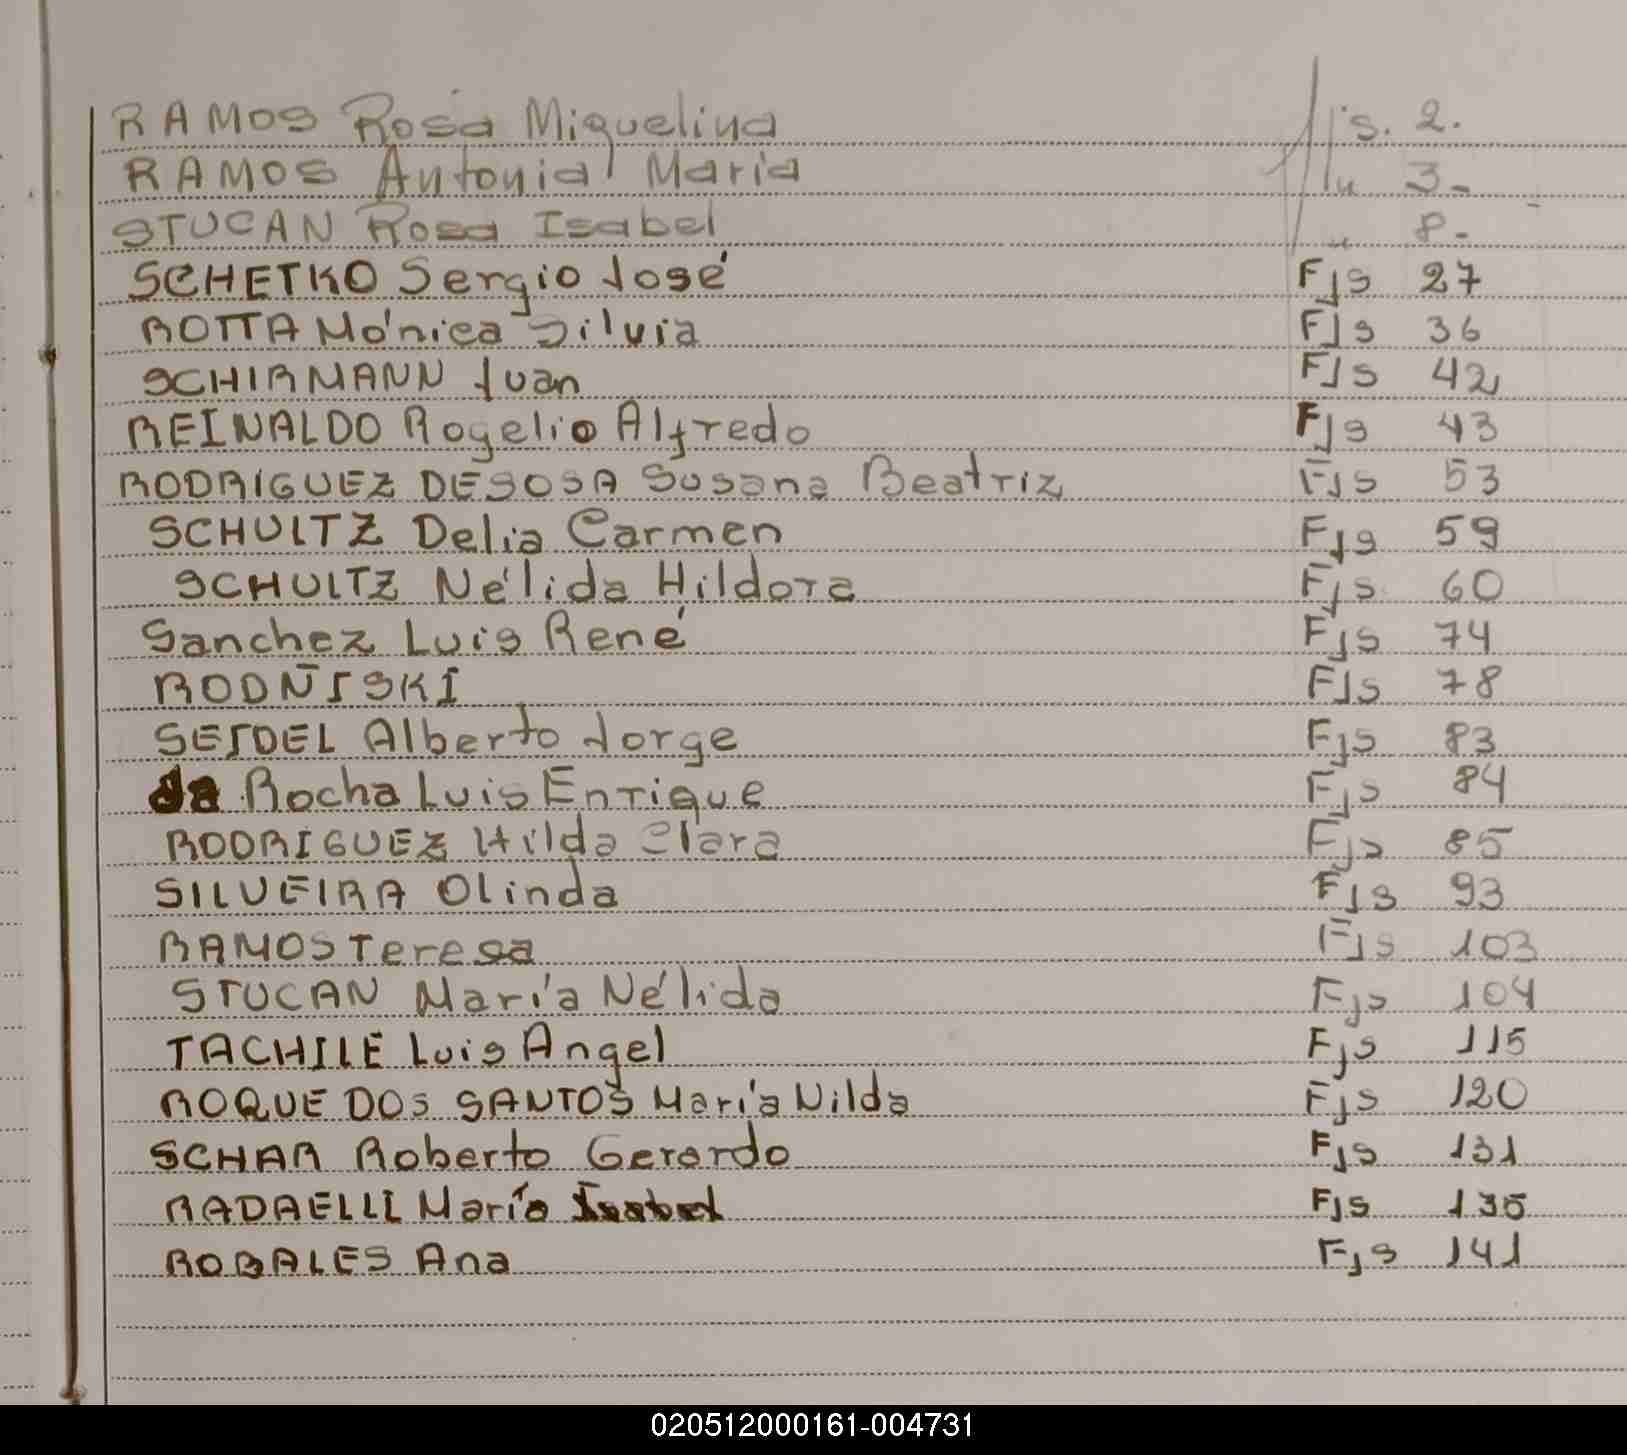 RAMOS Rosa Miquelina fjs. 2.
RAMOS Antonia Maria " 3-
STUCAN Rosa Isabel " 8-
SCHETKO Sergio José Fjs 27
ROTTA Mónica Silvia Fjs 36
SCHIRMANN Juan Fjs 42
REINALDO Rogelio Alfredo Fjs 43
RODRIGUEZ DESOSA Susana Beatriz Fjs 53
SCHULTZ Delia Carmen Fjs 59
SCHULTZ Nélida Hildora Fjs 60
Sanchez Luis René Fjs 74
RODÑISKI Fjs 78
SEIDEL Alberto Jorge Fjs 83
da Rocha Luis Enrique Fjs 84
RODRIGUEZ Hilda Clara Fjs 85
SILVEIRA Olinda Fjs 93
RAMOS Teresa Fjs 103
STUCAN María Nélida Fjs 104
TACHILE Luis Angel Fjs 115
ROQUE DOS SANTOS María Nilda Fjs 120
SCHAR Roberto Gerardo Fjs 131
RADAELLI María Isabel Fjs 135
ROBALES Ana Fjs 141
020512000161-004731